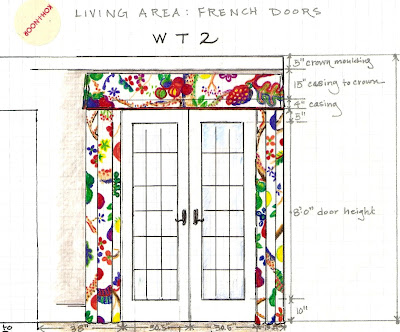 KOH-I-NOOR
LIVING AREA: FRENCH DOORS
WT2
5" crown moulding
15" casing to crown
4" casing
5"
8'0" door height
10"
38"